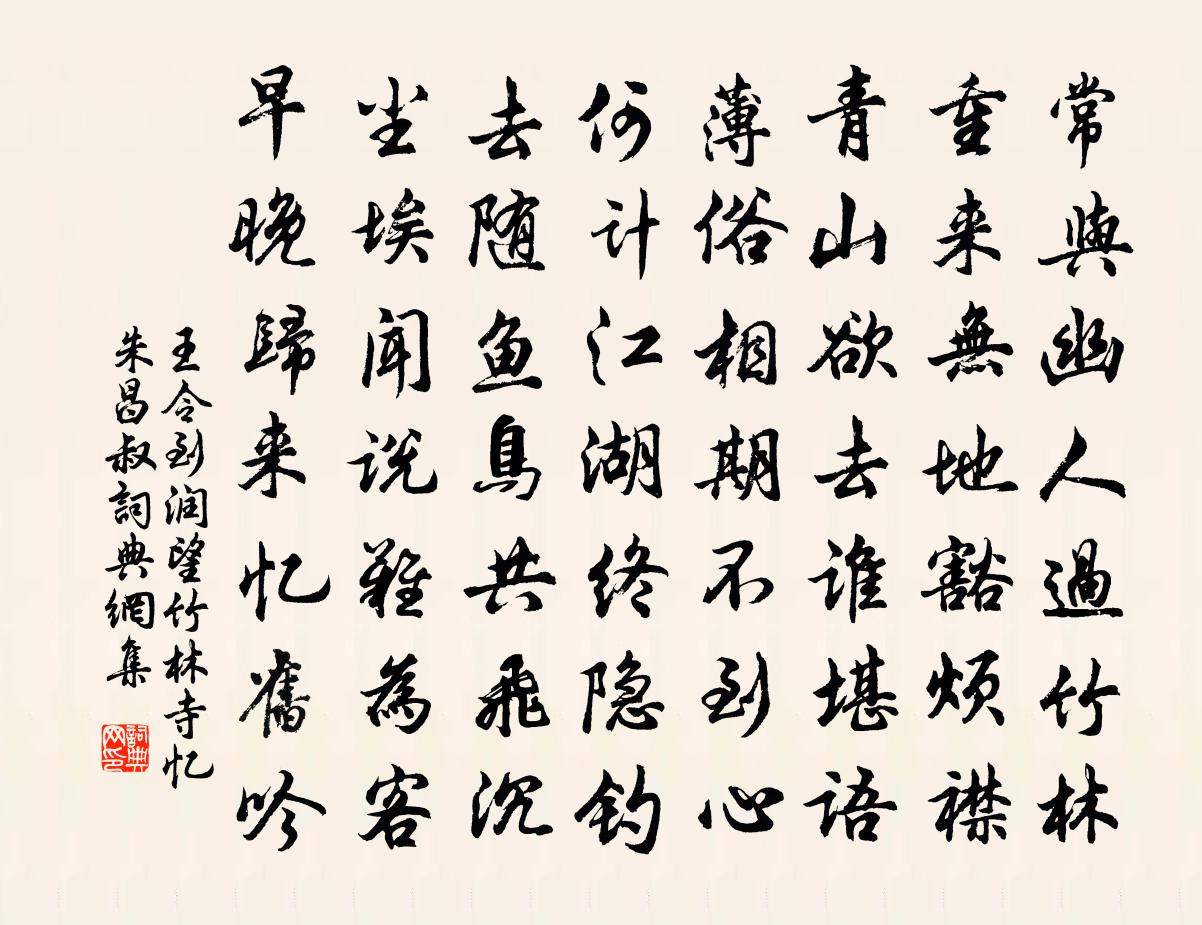 常與幽人過竹林
重来無地豁烦襟
青山欲去谁堪语
薄俗相期不到心
何计江湖终隐钓
去随鱼鳥共飛沉
尘埃闻说難為客
早晚歸来忆舊吟
王令到润望竹林寺忆
朱昌叔詞典網集
詞典网印